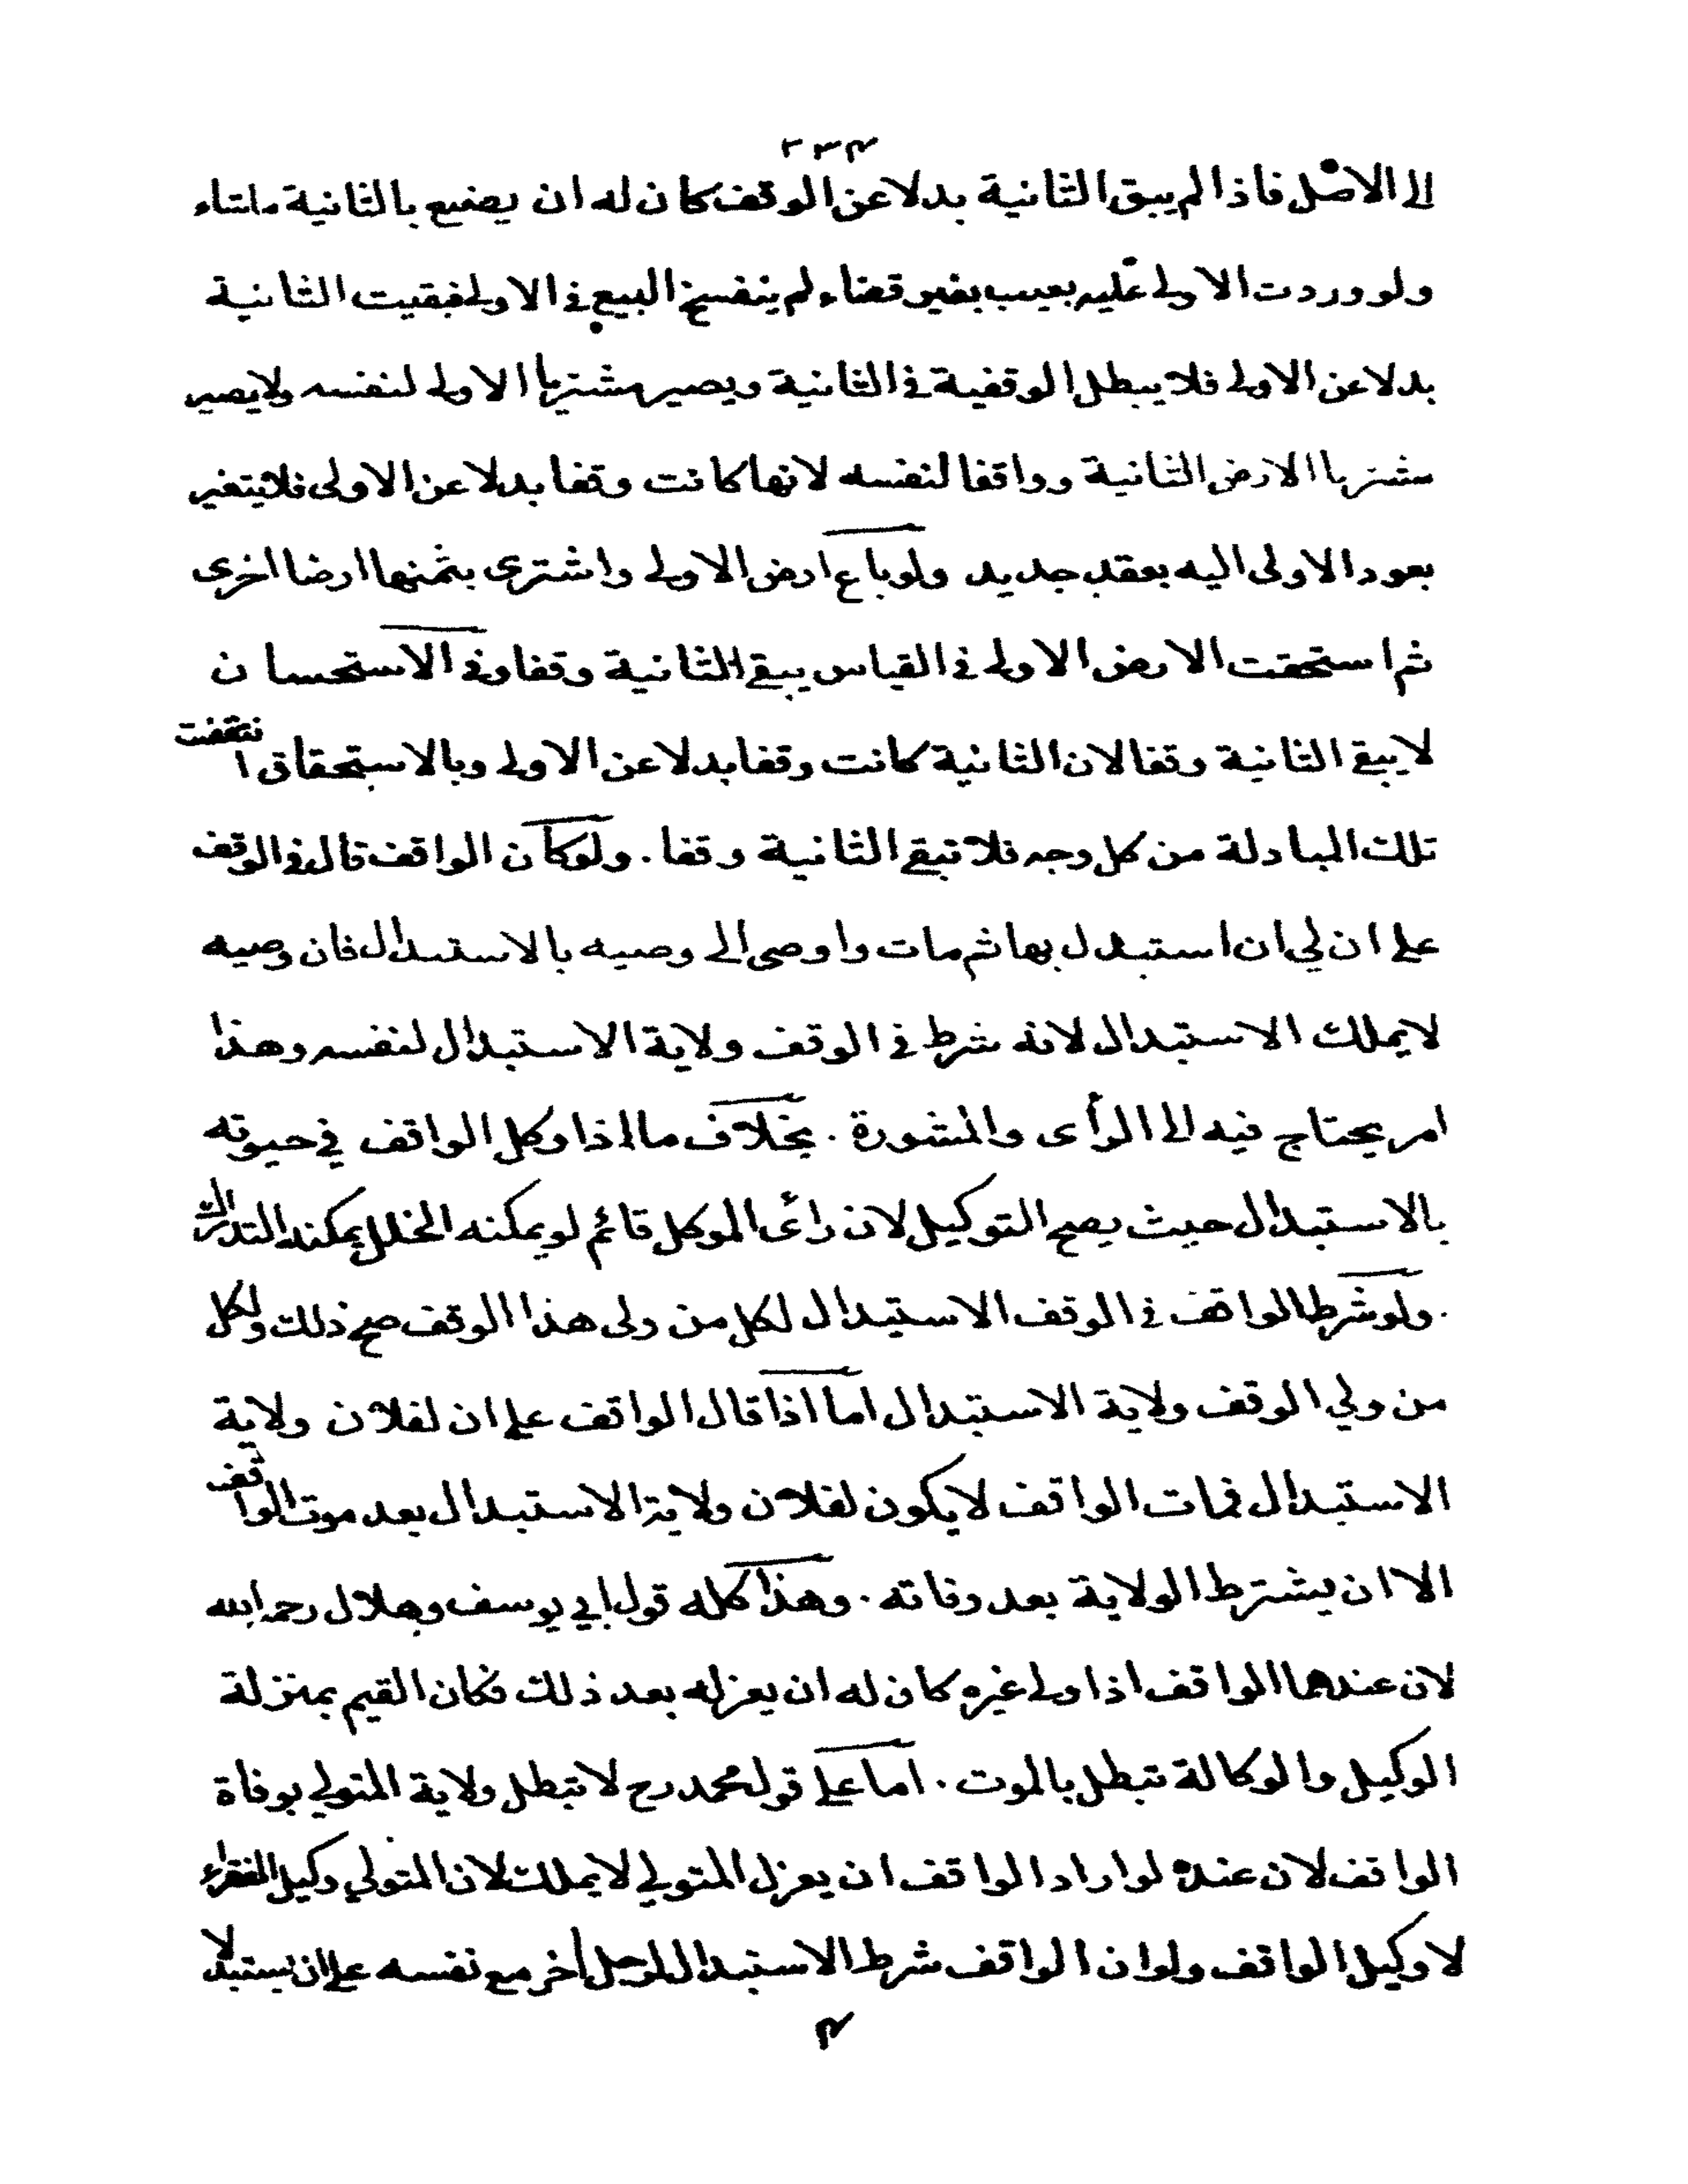 ٢٣٤
الى الاصل فاذا لم يبق الثانية بدلا عن الوقف كان له ان يصنع بالثانية ماشاء
ولو وردت الاولى عليه بعيب بغير قضاء لم ينفسخ البيع في الاولى فبقيت الثانية
بدلا عن الاولى فلا يبطل الوقفية في الثانية ويصير مشتريا الاولى لنفسه ولا يصير
مشتريا الارض الثانية وواقفا لنفسه لانها كانت وقفا بدلا عن الاولى فلا يتغير
بعود الاولى اليه بعقد جديد ولو باع ارض الاولى واشترى بثمنها ارضا اخرى
ثم استحقت الارض الاولى في القياس يبقى الثانية وقفا وفي الاستحسان
لا يبقى الثانية وقفا لان الثانية كانت وقفا بدلا عن الاولى وبالاستحقاق انتقضت
تلك المبادلة من كل وجه فلا تبقى الثانية وقفا . ولو كان الواقف قال في الوقف
على ان لي ان استبدل بها ثم مات واوصى الى وصيه بالاستبدال فان وصيه
لا يملك الاستبدال لانه شرط في الوقف ولاية الاستبدال لنفسه وهذا
امر يحتاج فيه الى الرأى والمشورة . بخلاف ما اذا وكل الواقف في حيوته
بالاستبدال حيث يصح التوكيل لان رائ الموكل قائم لو يمكنه الخلل يمكنه التدارك
. ولو شرط الواقف في الوقف الاستبدال لكل من ولى هذا الوقف صح ذلك ولكل
من ولي الوقف ولاية الاستبدال اما اذا قال الواقف على ان لفلان ولاية
الاستبدال فمات الواقف لا يكون لفلان ولاية الاستبدال بعد موت الواقف
الا ان يشترط الولاية بعد وفاته . وهذا كله قول ابي يوسف وهلال رحمه الله
لان عندهما الواقف اذا ولى غيره كان له ان يعزله بعد ذلك فكان القيم بمنزلة
الوكيل والوكالة تبطل بالموت . اما على قول محمد رح لا تبطل ولاية المتولي بوفاة
الواقف لان عنده لو اراد الواقف ان يعزل المتولي لا يملك لان المتولي وكيل الفقراء
لا وكيل الواقف ولو ان الواقف شرط الاستبدال لرجل أخر مع نفسه على ان يستبدلا